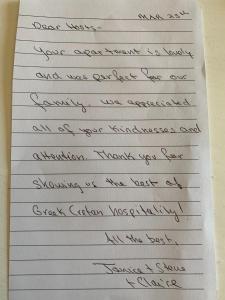 MAR 25th
Dear Hosts-
Your apartment is lovely
and was perfect for our
family. We appreciated
all of your kindnesses and
attention. Thank you for
showing us the best of
Greek Cretan hospitality!
All the best,
Janice + Steve
+ Claire